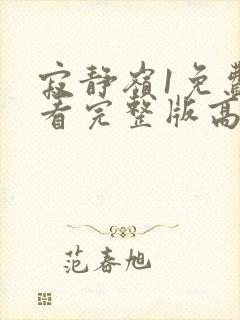 寂静嶺1免費
看完整版高
范春旭